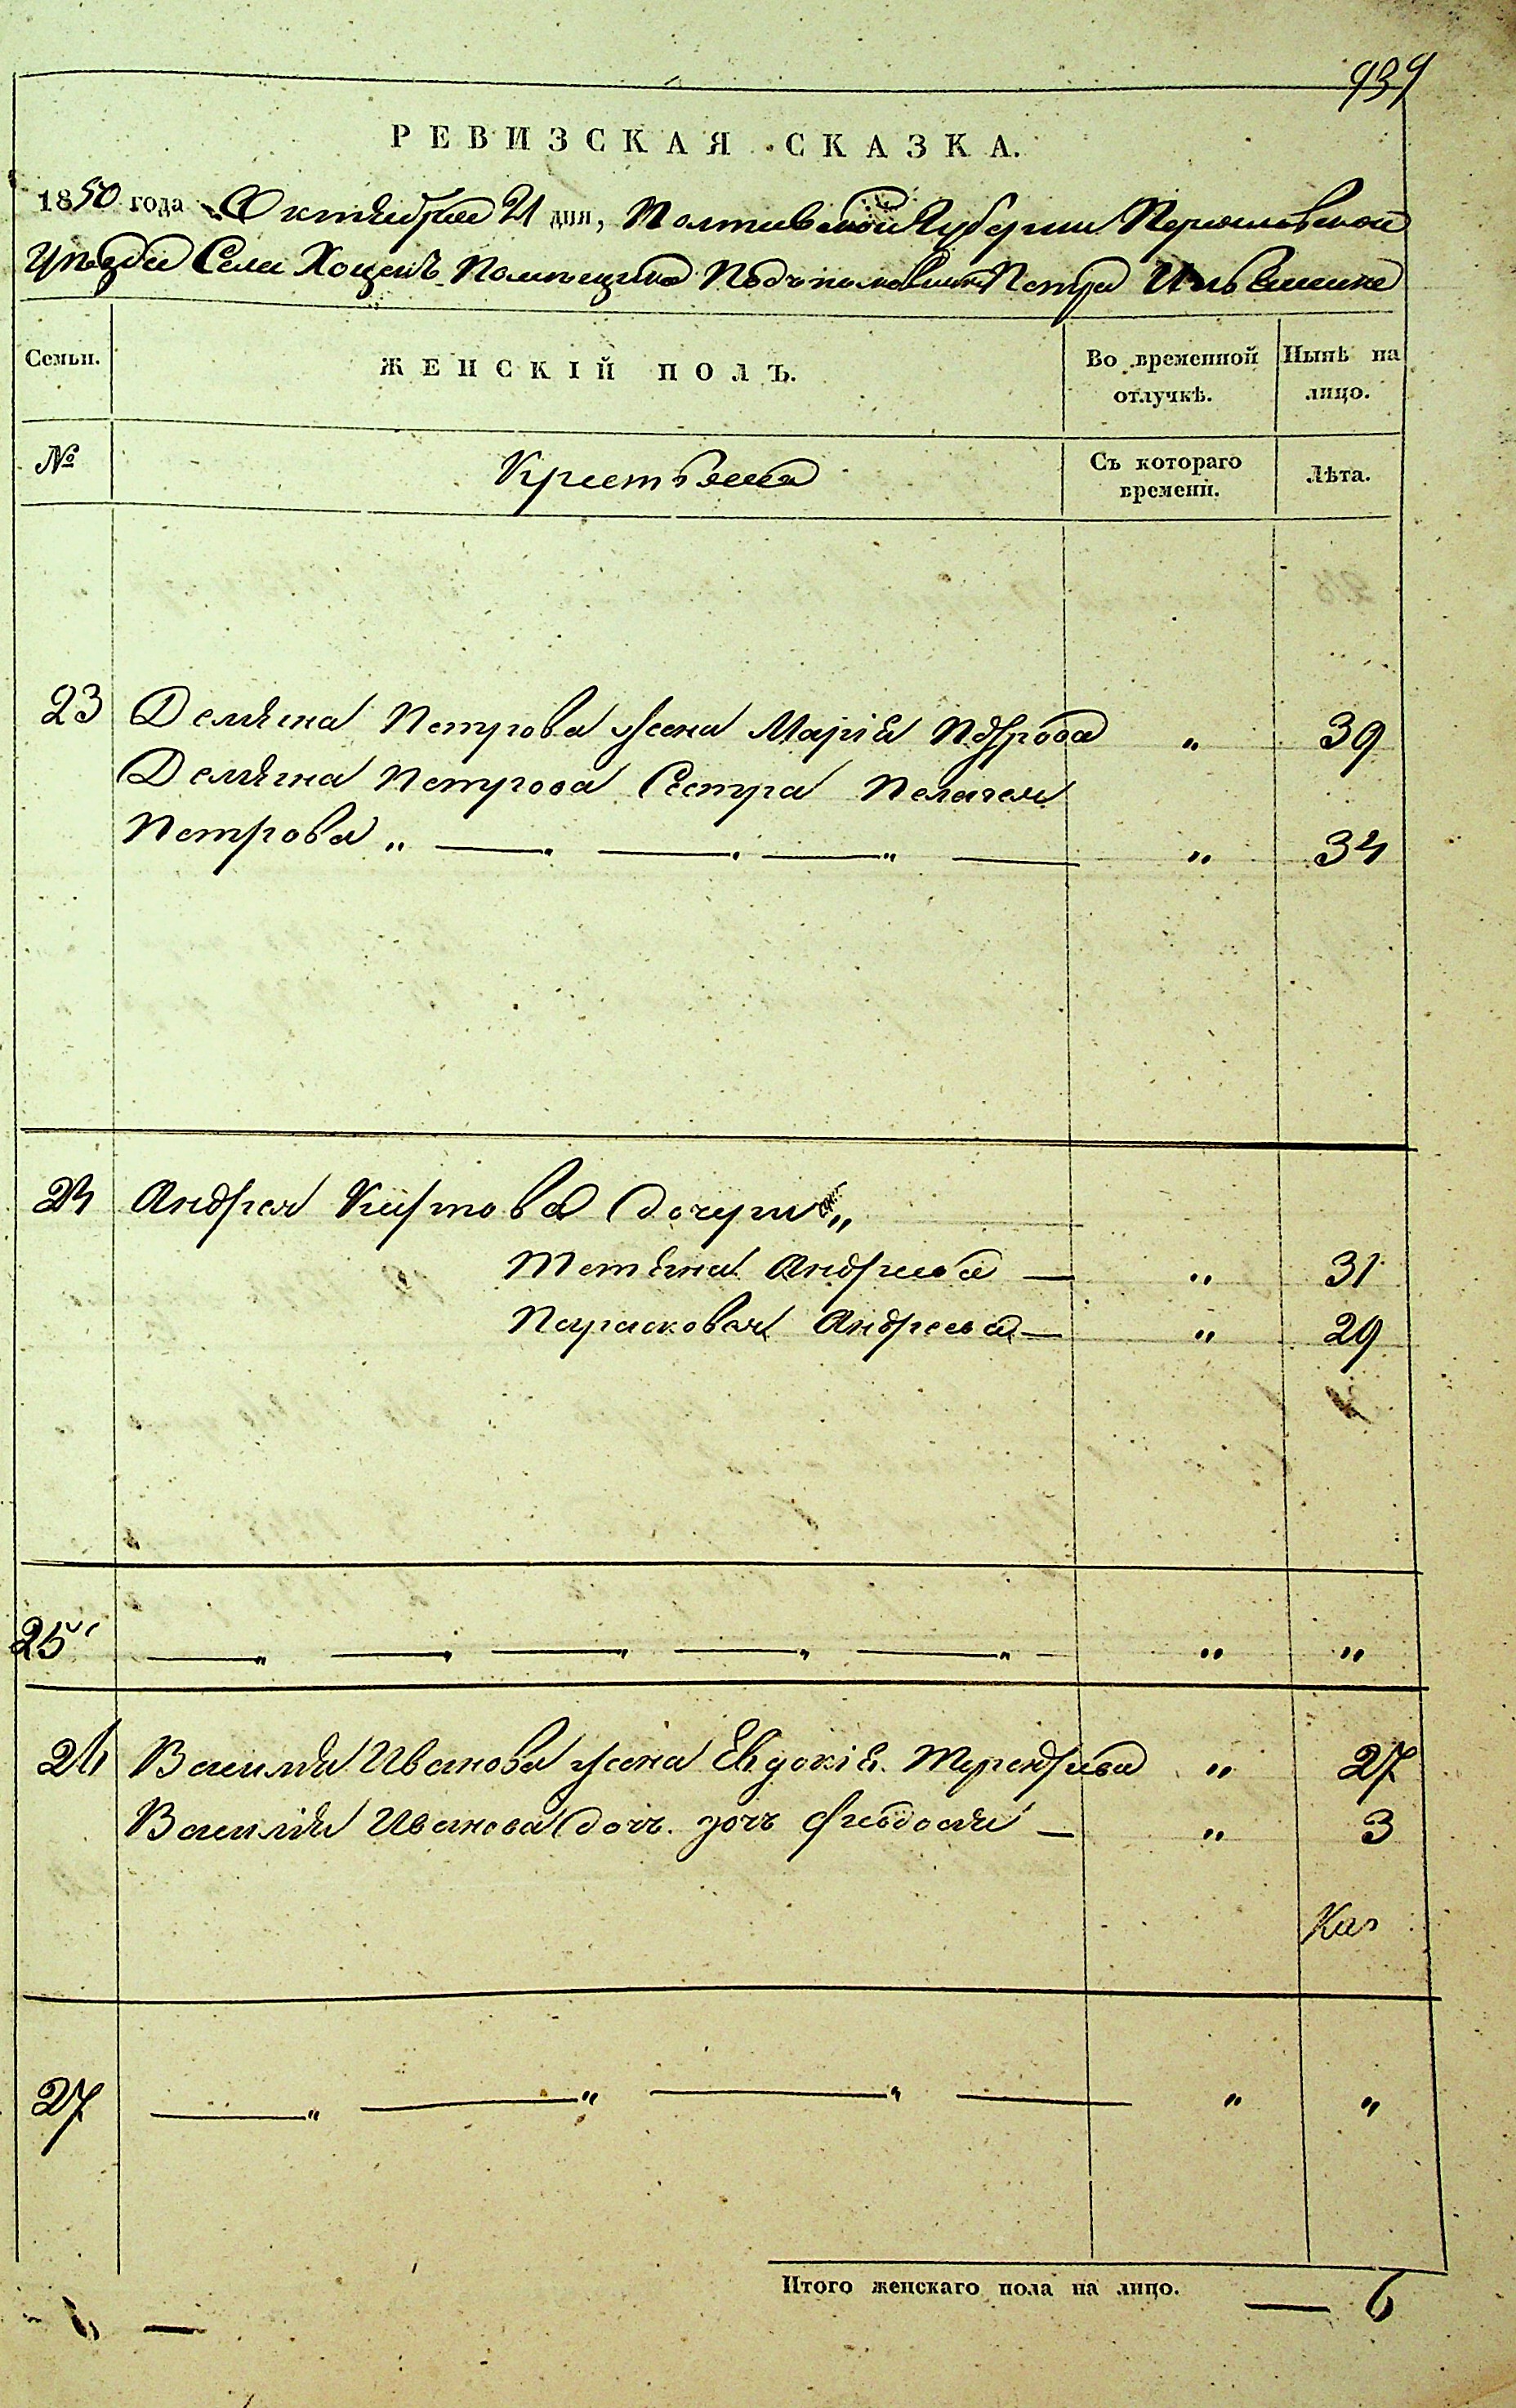 939
РЕВИЗСКАЯ СКАЗКА.
1850 года Октября 21 дня, Полтавской Губернии Переяславской
Уѣзда Села Хоцекъ Помѣщика Подполковника Петра Ильяшенка
Семьи. ЖЕНСКІЙ ПОЛЪ. Во временной отлучкѣ. Нынѣ на лицо.
№ Крестьяна Съ котораго времени. Лѣта.
23 Демяна Петрова жена Марія " 39
Демяна Петрова Сестра Пелагея
Петрова " — " — " — " — " 34
24 Андрея Карпова дочери "
Тетяна Андреева — " 31
Парасковея Андреева — " 29
25 — " — " — " — " — " — " "
26 Василія Иванова жена Евдокія " 27
Василія Иванова дочь Феодосія — " 3
27 — " — " — " — " "
Итого женскаго пола на лицо. — 6